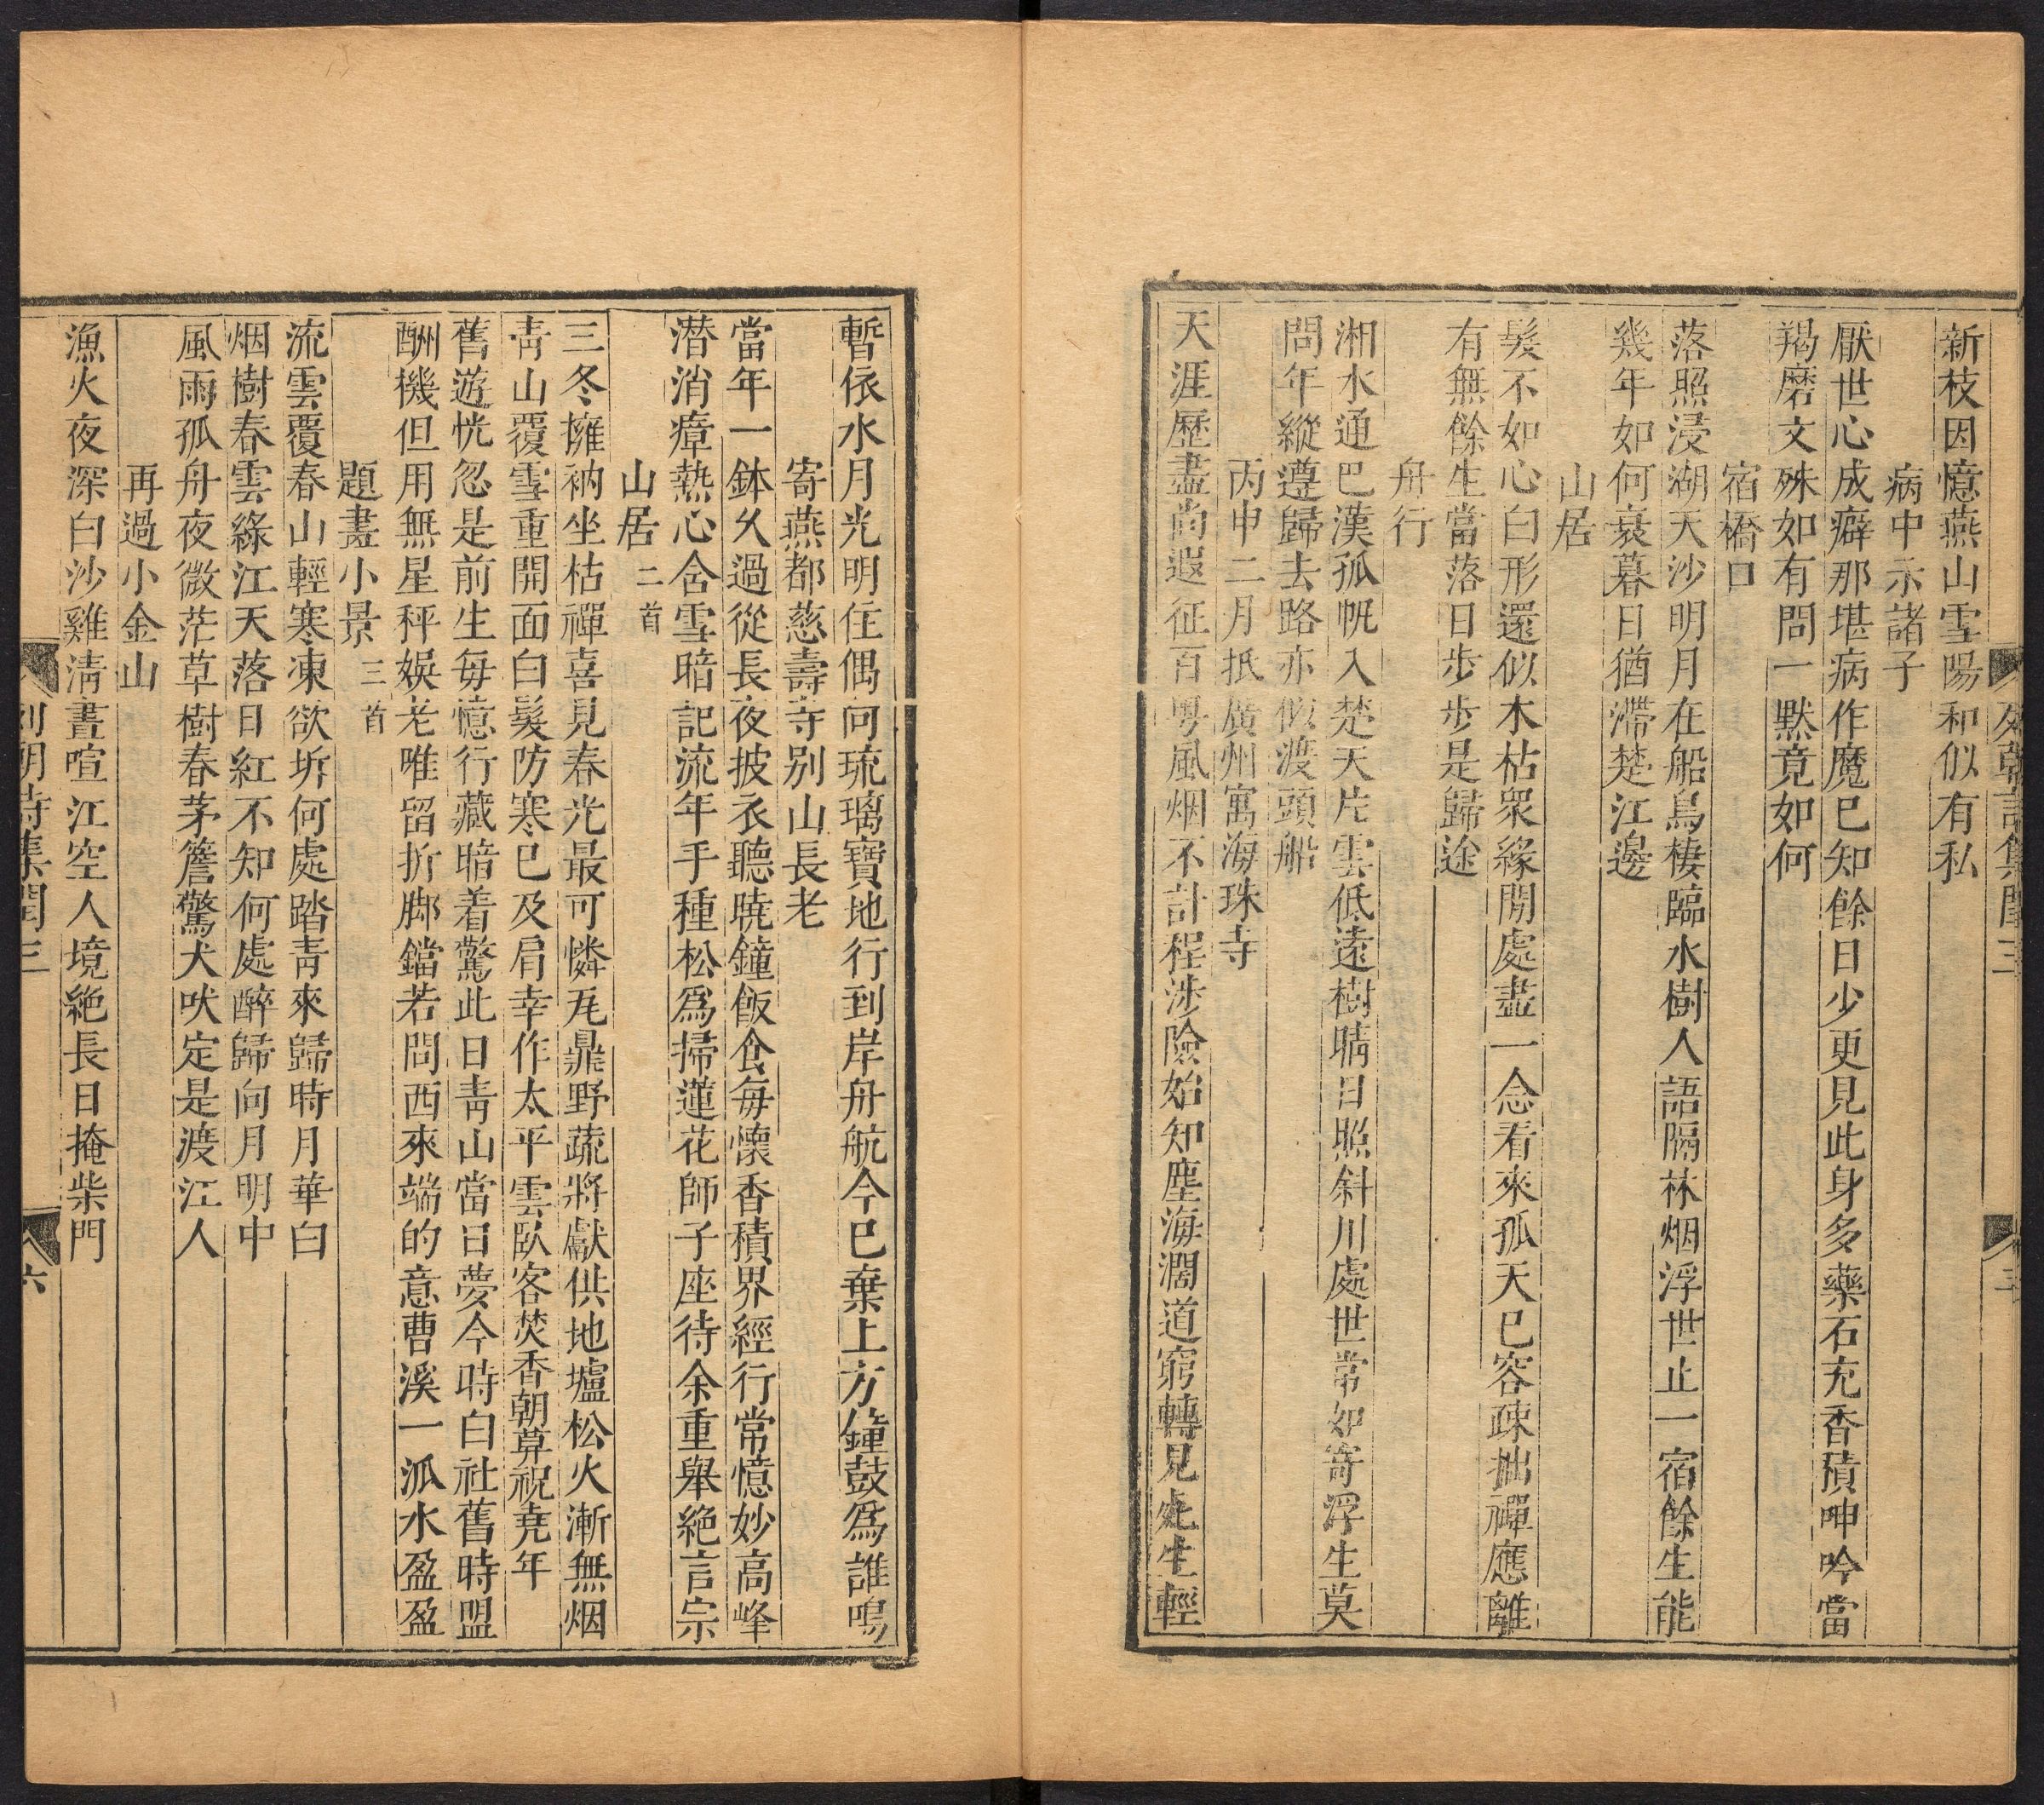 新枝因憶燕山雪陽和似有私
病中示諸子
厭世心成癖那堪病作魔已知餘日少更見此身多藥石充香積呻吟當
羯磨文殊如有問一默竟如何
宿橋口
落照浸湖天沙明月在船鳥棲臨水樹人語隔林烟浮世止一宿餘生能
幾年如何衰暮日猶滯楚江邊
山居
髮不如心白形還似木枯眾緣閒處盡一念看來孤天已容疎拙禪應離
有無餘生當落日步步是歸途
舟行
湘水通巴漢孤帆入楚天片雲低遠樹晴日照斜川處世常如寄浮生莫
問年縱遵歸去路亦似渡頭船
丙申二月抵廣州寓海珠寺
天涯歷盡尚遐征百粵風烟不計程涉險始知塵海濶道窮轉見此生輕
暫依水月光明住偶向琉璃寶地行到岸舟航今已棄上方鐘鼓爲誰鳴
寄燕都慈壽寺別山長老
當年一鉢久過從長夜披衣聽曉鐘飯食每懷香積界經行常憶妙高峰
潜消瘴熱心含雪暗記流年手種松爲掃蓮花師子座待余重舉絕言宗
山居二首
三冬擁衲坐枯禪喜見春光最可憐瓦鼎野蔬將獻供地壚松火漸無烟
靑山覆雪重開面白髮防寒已及肩幸作太平雲臥客焚香朝暮祝堯年
舊遊恍忽是前生每憶行藏暗着驚此日靑山當日夢今時白社舊時盟
酬機但用無星秤娛老唯留折脚鐺若問西來端的意曹溪一派水盈盈
題畫小景三首
流雲覆春山輕寒凍欲坼何處踏靑來歸時月華白
烟樹春雲綠江天落日紅不知何處醉歸向月明中
風雨孤舟夜微茫草樹春茅簷驚犬吠定是渡江人
再過小金山
漁火夜深白沙雞淸晝喧江空人境絕長日掩柴門
列朝詩集閏三
六